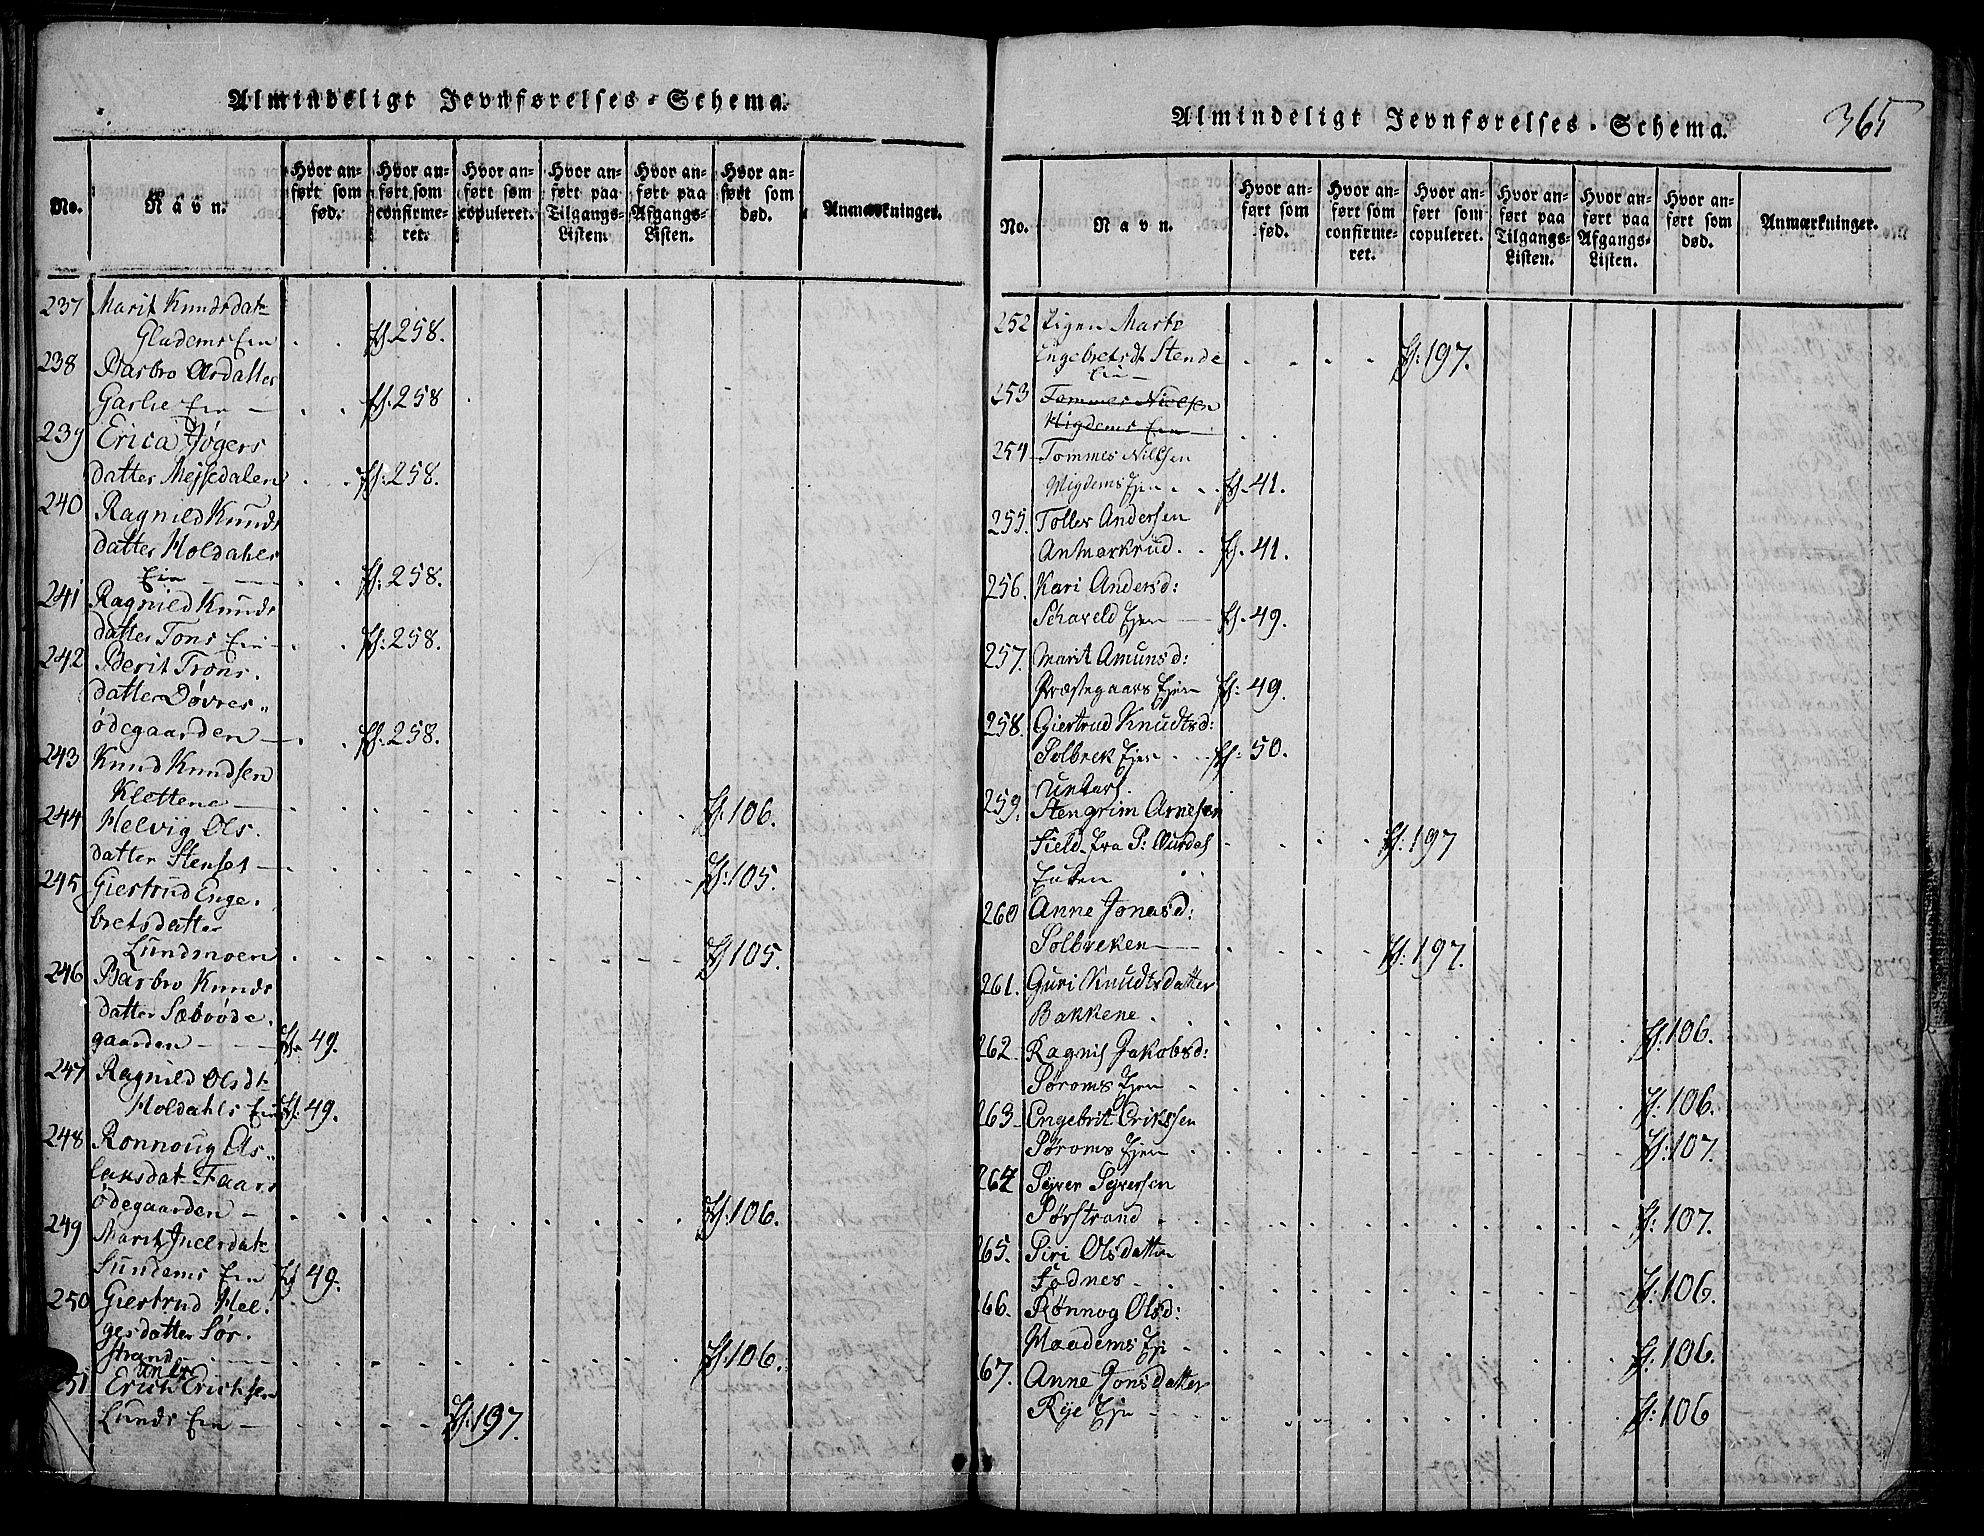 Almindeligt Jevnførelses-Schema.
No.
Navn.
Hvor anført som fød.
Hvor anført som confirmeret.
Hvor anført som copuleret.
Hvor anført paa Tilgangs-Listen.
Hvor anført paa Afgangs-Listen.
Hvor anført som død.
Anmærkninger.
237 Marit Knudsdat
Gladems Ein fol. 258.
238 Barbro Ardatter
Garlie Ein fol. 258
239 Erica Jøgers
datter Mejsedalen fol. 258.
240 Ragnild Knuds
datter Moldahls
Ein fol. 258.
241 Ragnild Knuds
datter Tons Ein fol. 258.
242 Berit Trons.
datter Dovres„
ødegaarden fol. 258.
243 Knud Knudsen
Klettene fol. 106.
244 Helvig Ols.
datter Stenset fol. 105.
245 Giertrud Enge.
bretsdatter
Lundmoen fol. 105.
246 Barbro Knuds
datter Sæboøde.
gaarden fol. 49.
247 Ragnild Olsdt
Moldahls Ein fol. 49.
248 Ronnoug As„
laksdat Faars
ødegaarden fol. 106.
249 Marit Jverdat
Sundems Ein fol. 49.
250 Giertrud Hel.
gesdatter Sør.
strand fol. 106.
251 Unkr
Erich Erichsen
Lunds Ein fol. 197.
Almindeligt Jevnførelses-Schema.
365
No.
Navn.
Hvor anført som fød.
Hvor anført som confirmeret.
Hvor anført som copuleret.
Hvor anført paa Tilgangs-Listen.
Hvor anført paa Afgangs-Listen.
Hvor anført som død.
Anmærkninger.
252 Pigen Marte
Engebretsdt Stende fol. 197.
Ein
253 Tommes Nielsen
Migdems Ein
254 Tommes Nielsen
Migdems Ejen fol. 41.
255. Tolles Andersen
Anmarkrud fol. 41.
256. Kari Andersd:
Schaveld Ejen fol. 49.
257. Marit Amunsd:
Præstegaars Ejen fol. 49.
258. Giertrud Knudtsd:
Solbrek Ejen fol. 50.
259. Unkarl.
Stengrim Arnesen
Field fra P: Aurdal fol. 197
Enken
260 Anne Jonasd:
Solbreken fol. 197.
261. Guri Knudtsdatter
Bakkene fol. 106.
262 Ragnil Jakobsd:
Søroms Ejen fol. 106.
263 Engebrit Erikssen
Søroms Ejen fol. 107.
264 Syver Syversen
Sørstrand fol. 107.
265. Siri Olsdatter
Fodnes fol. 106.
266. Rønnog Olsd:
Maadems Ej fol. 106.
67. Anne Jonsdatter
Rye Ejn fol. 106